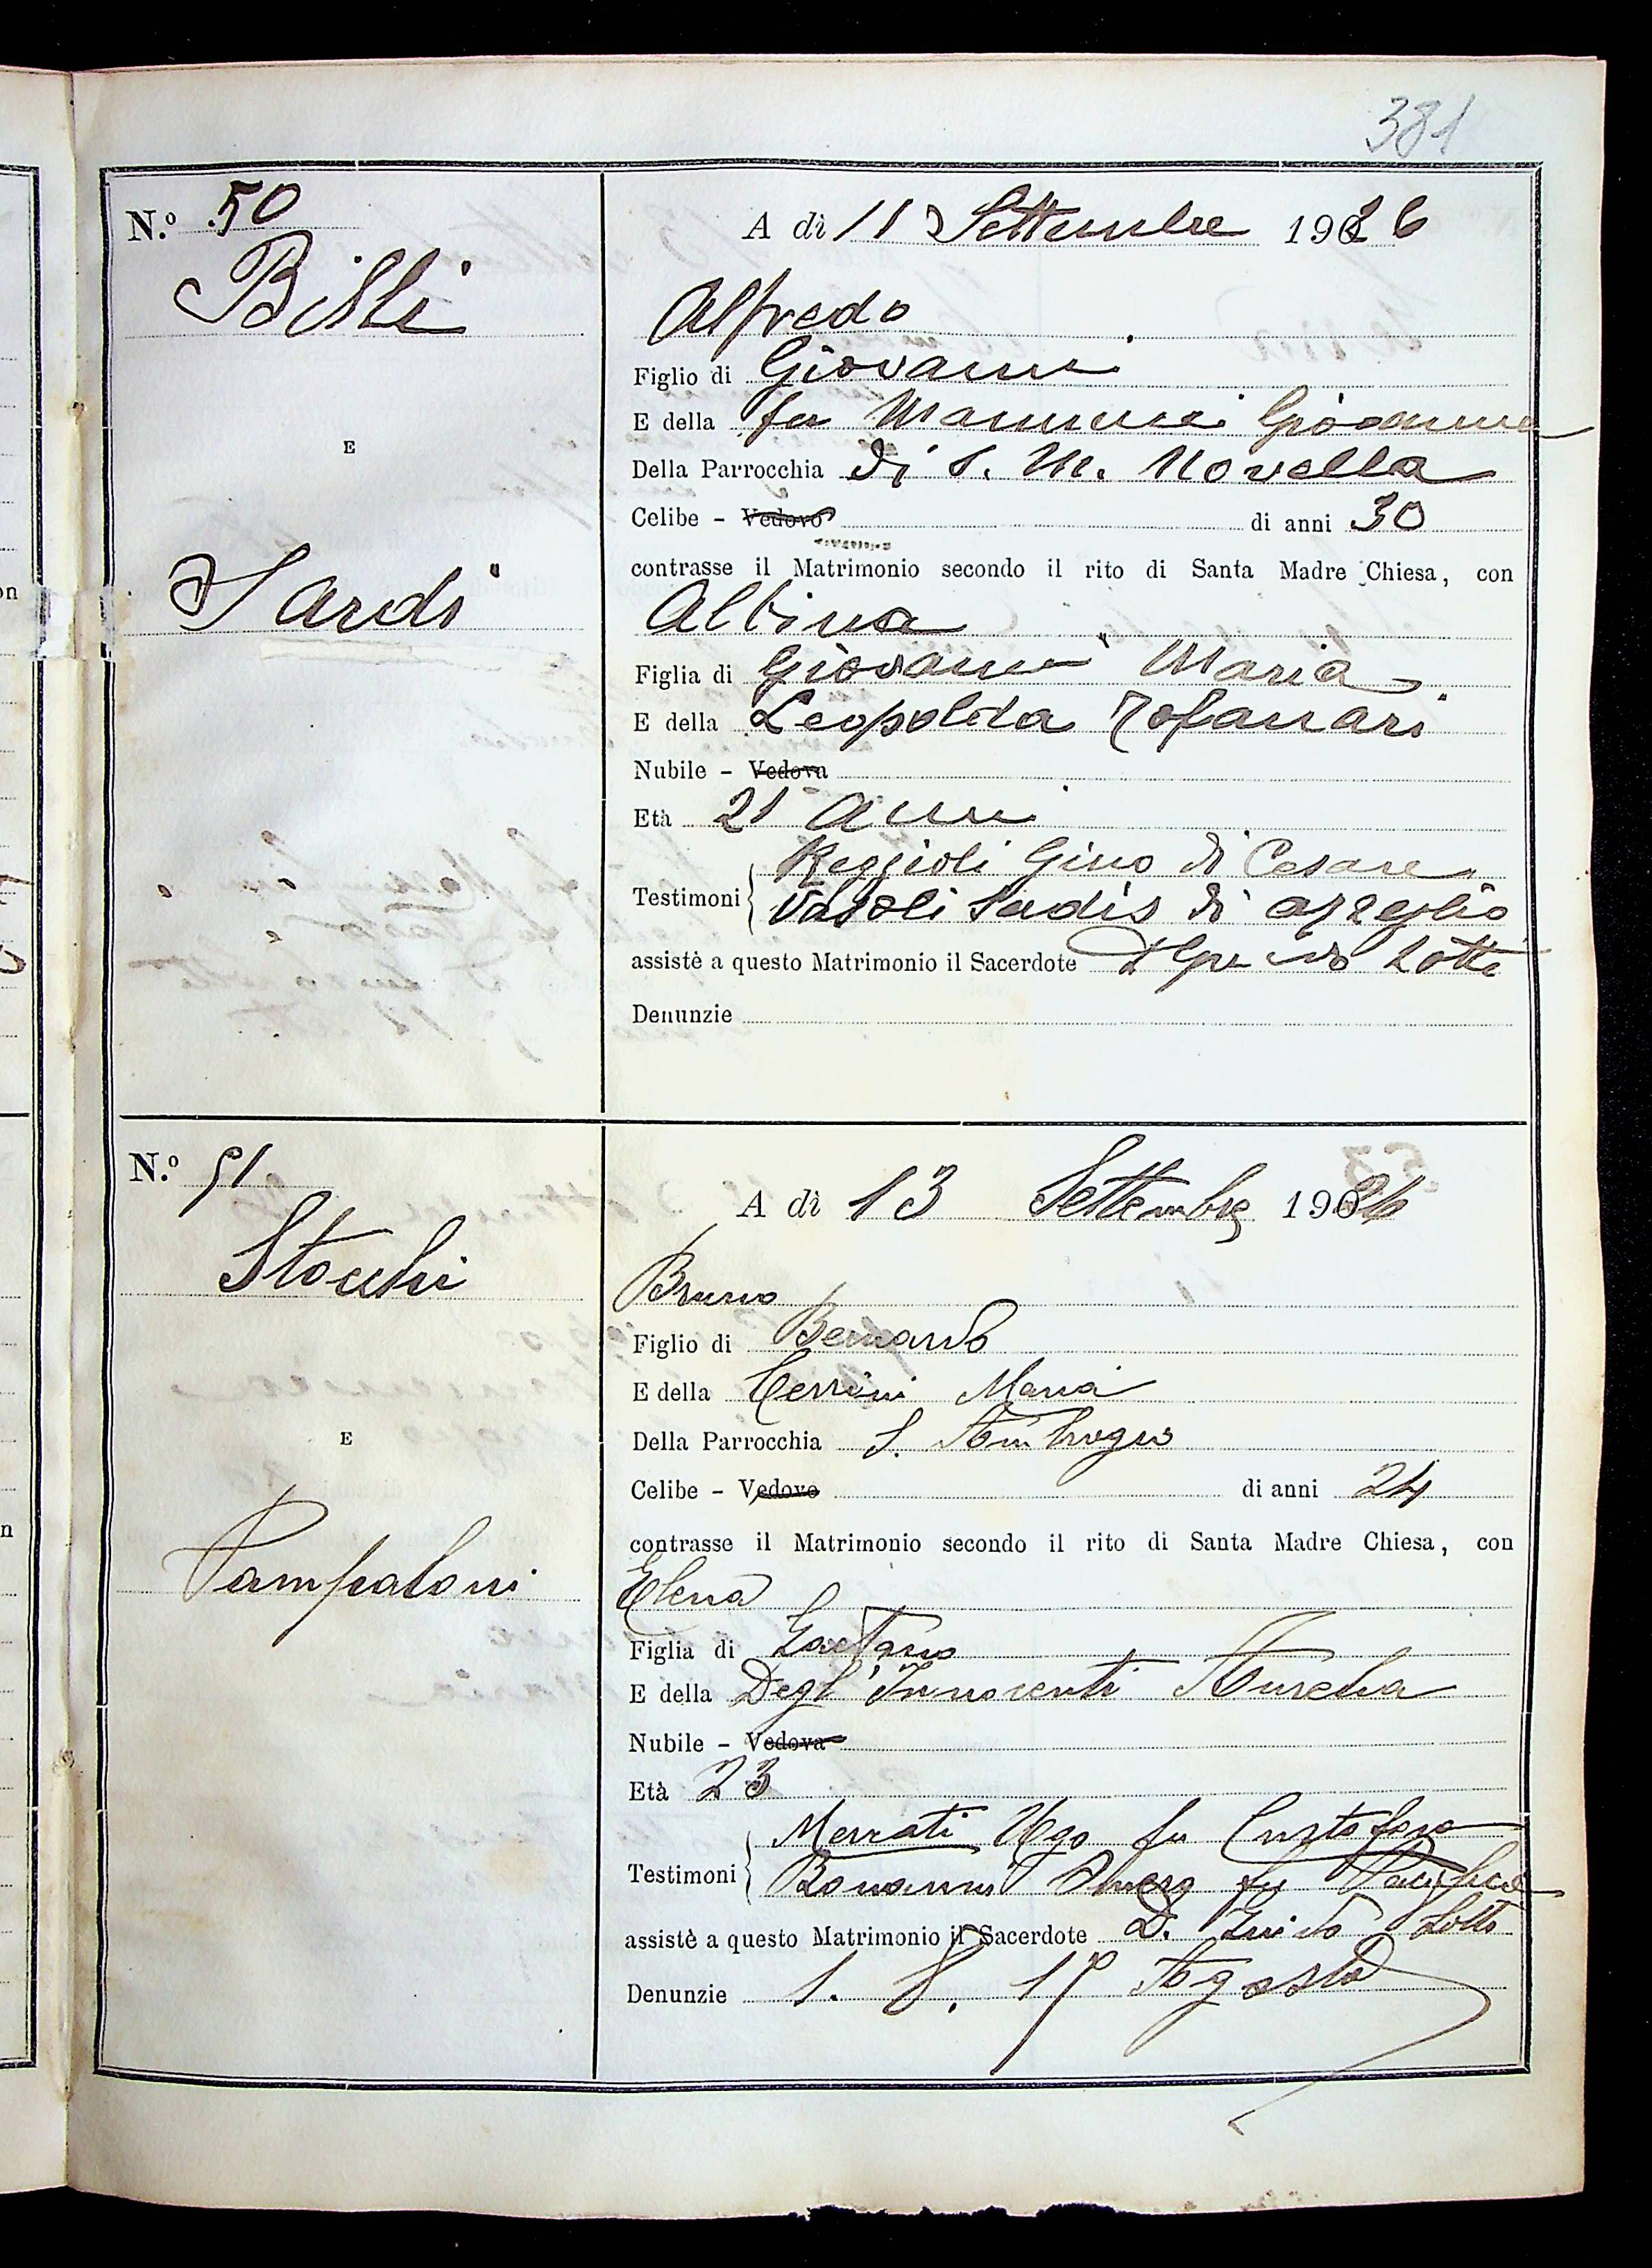 381
N.º 50
A dì 11 Settembre 1926
Billi
Alfredo
Figlio di Giovanni
E della fu Mannucci Giovanna
E
Della Parrocchia di S. M. Novella
Celibe - Vedovo di anni 30
contrasse il Matrimonio secondo il rito di Santa Madre Chiesa, con
Sardi
Albina
Figlia di Giovanni Maria
E della Leopolda Tofanari
Nubile - Vedova
Età 21 anni
Testimoni Reggioli Gino di Cesare
Vasoli di Azeglio
assistè a questo Matrimonio il Sacerdote Lotti
Denunzie
N.º 51
A dì 13 Settembre 1926
Stocchi
Bruno
Figlio di Bernardo
E della Cerrini Maria
E
Della Parrocchia S. Ambrogio
Celibe - Vedovo di anni 24
contrasse il Matrimonio secondo il rito di Santa Madre Chiesa, con
Pampaloni
Elena
Figlia di Gaetano
E della Degl'Innocenti Aurelia
Nubile - Vedova
Età 23
Testimoni Merrati Ugo fu Cristoforo
Bonanni fu Pacifico
assistè a questo Matrimonio il Sacerdote D. Guido Lotti
Denunzie 1. 8. 15 Agosto